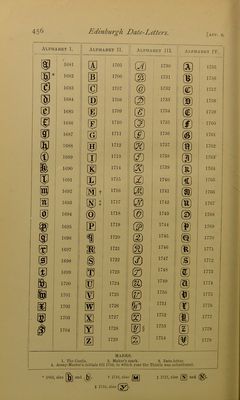 456 Edinburgh Date-Letters. [APP. B.
ALPHABET I. ALPHABET II. ALPHABET III. ALPHABET IV.
a 1681 A 1705 A 1730 A 1755
b * 1682 B 1706 B 1731 B 1756
c 1683 C 1707 C 1732 C 1757
d 1684 D 1708 D 1733 D 1758
e 1685 E 1709 E 1734 E 1759
f 1686 F 1710 F 1735 F 1760
g 1687 G 1711 G 1736 G 1761
h 1688 H 1712 H 1737 H 1762
i 1689 I 1713 I 1738 1763
k 1690 K 1714 K 1739 K 1764
l 1691 L 1715 L 1740 L 1765
m 1692 M † 1716 M 1741 M 1766
n 1693 N ‡ 1717 N 1742 N 1767
o 1694 O 1718 O 1743 O 1768
p 1695 P 1719 P 1744 P 1769
q 1696 q 1720 Q 1745 Q 1770
r 1697 R 1721 R 1746 R 1771
s 1698 S 1722 S 1747 S 1772
t 1699 T 1723 T 1748 T 1773
1700 U 1724 U 1749 1774
1701 V 1725 V 1750 1775
1702 W 1726 W 1751 1776
1703 X 1727 X 1752 X 1777
1704 Y 1728 Y § 1753 1778
Z 1729 Z 1754 1779
MARKS.
1. The Castle. 2. Maker's mark. 3. Date-letter.
4. Assay-Master's initials till 1759, in which year the Thistle was substituted.
* 1682, also b and b. † 1716, also M ‡ 1717, also N and N.
§ 1753, also Y